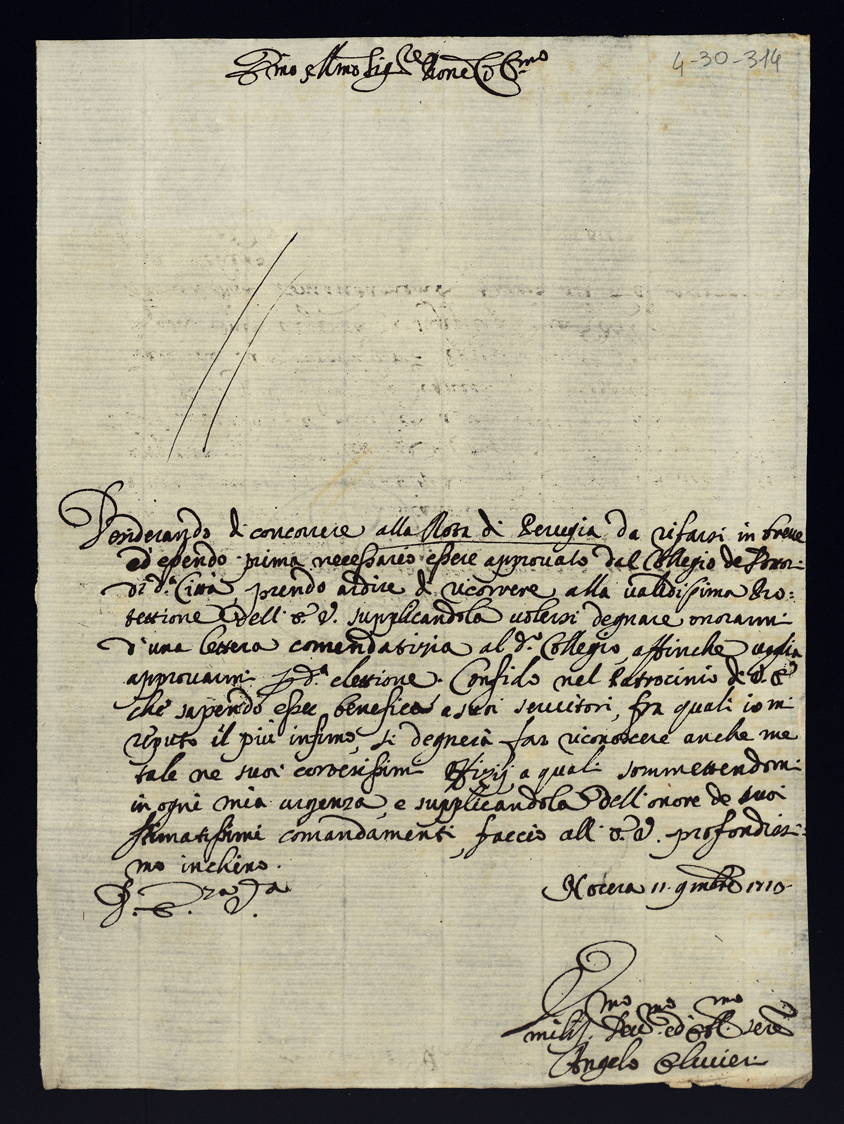 Ill.mo Sig.re Prone Col.mo
4-30-314
Desiderando di concorrere alla Rota di Perugia da rifarsi in breve
ed essendo prima necessario essere approvato dal Collegio de Dotto:
ri di d.a Città prendo ardire di ricorrere alla validissima Pro:
tettione dell' S. V. supplicandola volersi degnare onorarmi
d'una lettera comendatizia al d.o Collegio, affinche voglia
approvarmi p d.a elettione. Confido nel Patrocinio di V. S.
che sapendo esser benefico a suoi servitori, fra quali io mi
reputo il più infimo, si degnerà far riconoscere anche me
tale ne suoi cortesissimi Offizij a quali sommettendomi
in ogni mia urgenza, e supplicandola dell' onore de suoi
stimatissimi comandamenti, faccio all' S. V. profondissi:
mo inchino.
Nocera 11. 9mbre 1710.
Di V. S. Ill.ma
Umil.mo Dev.mo ed Obl.mo Ser.e
Angelo Olivieri